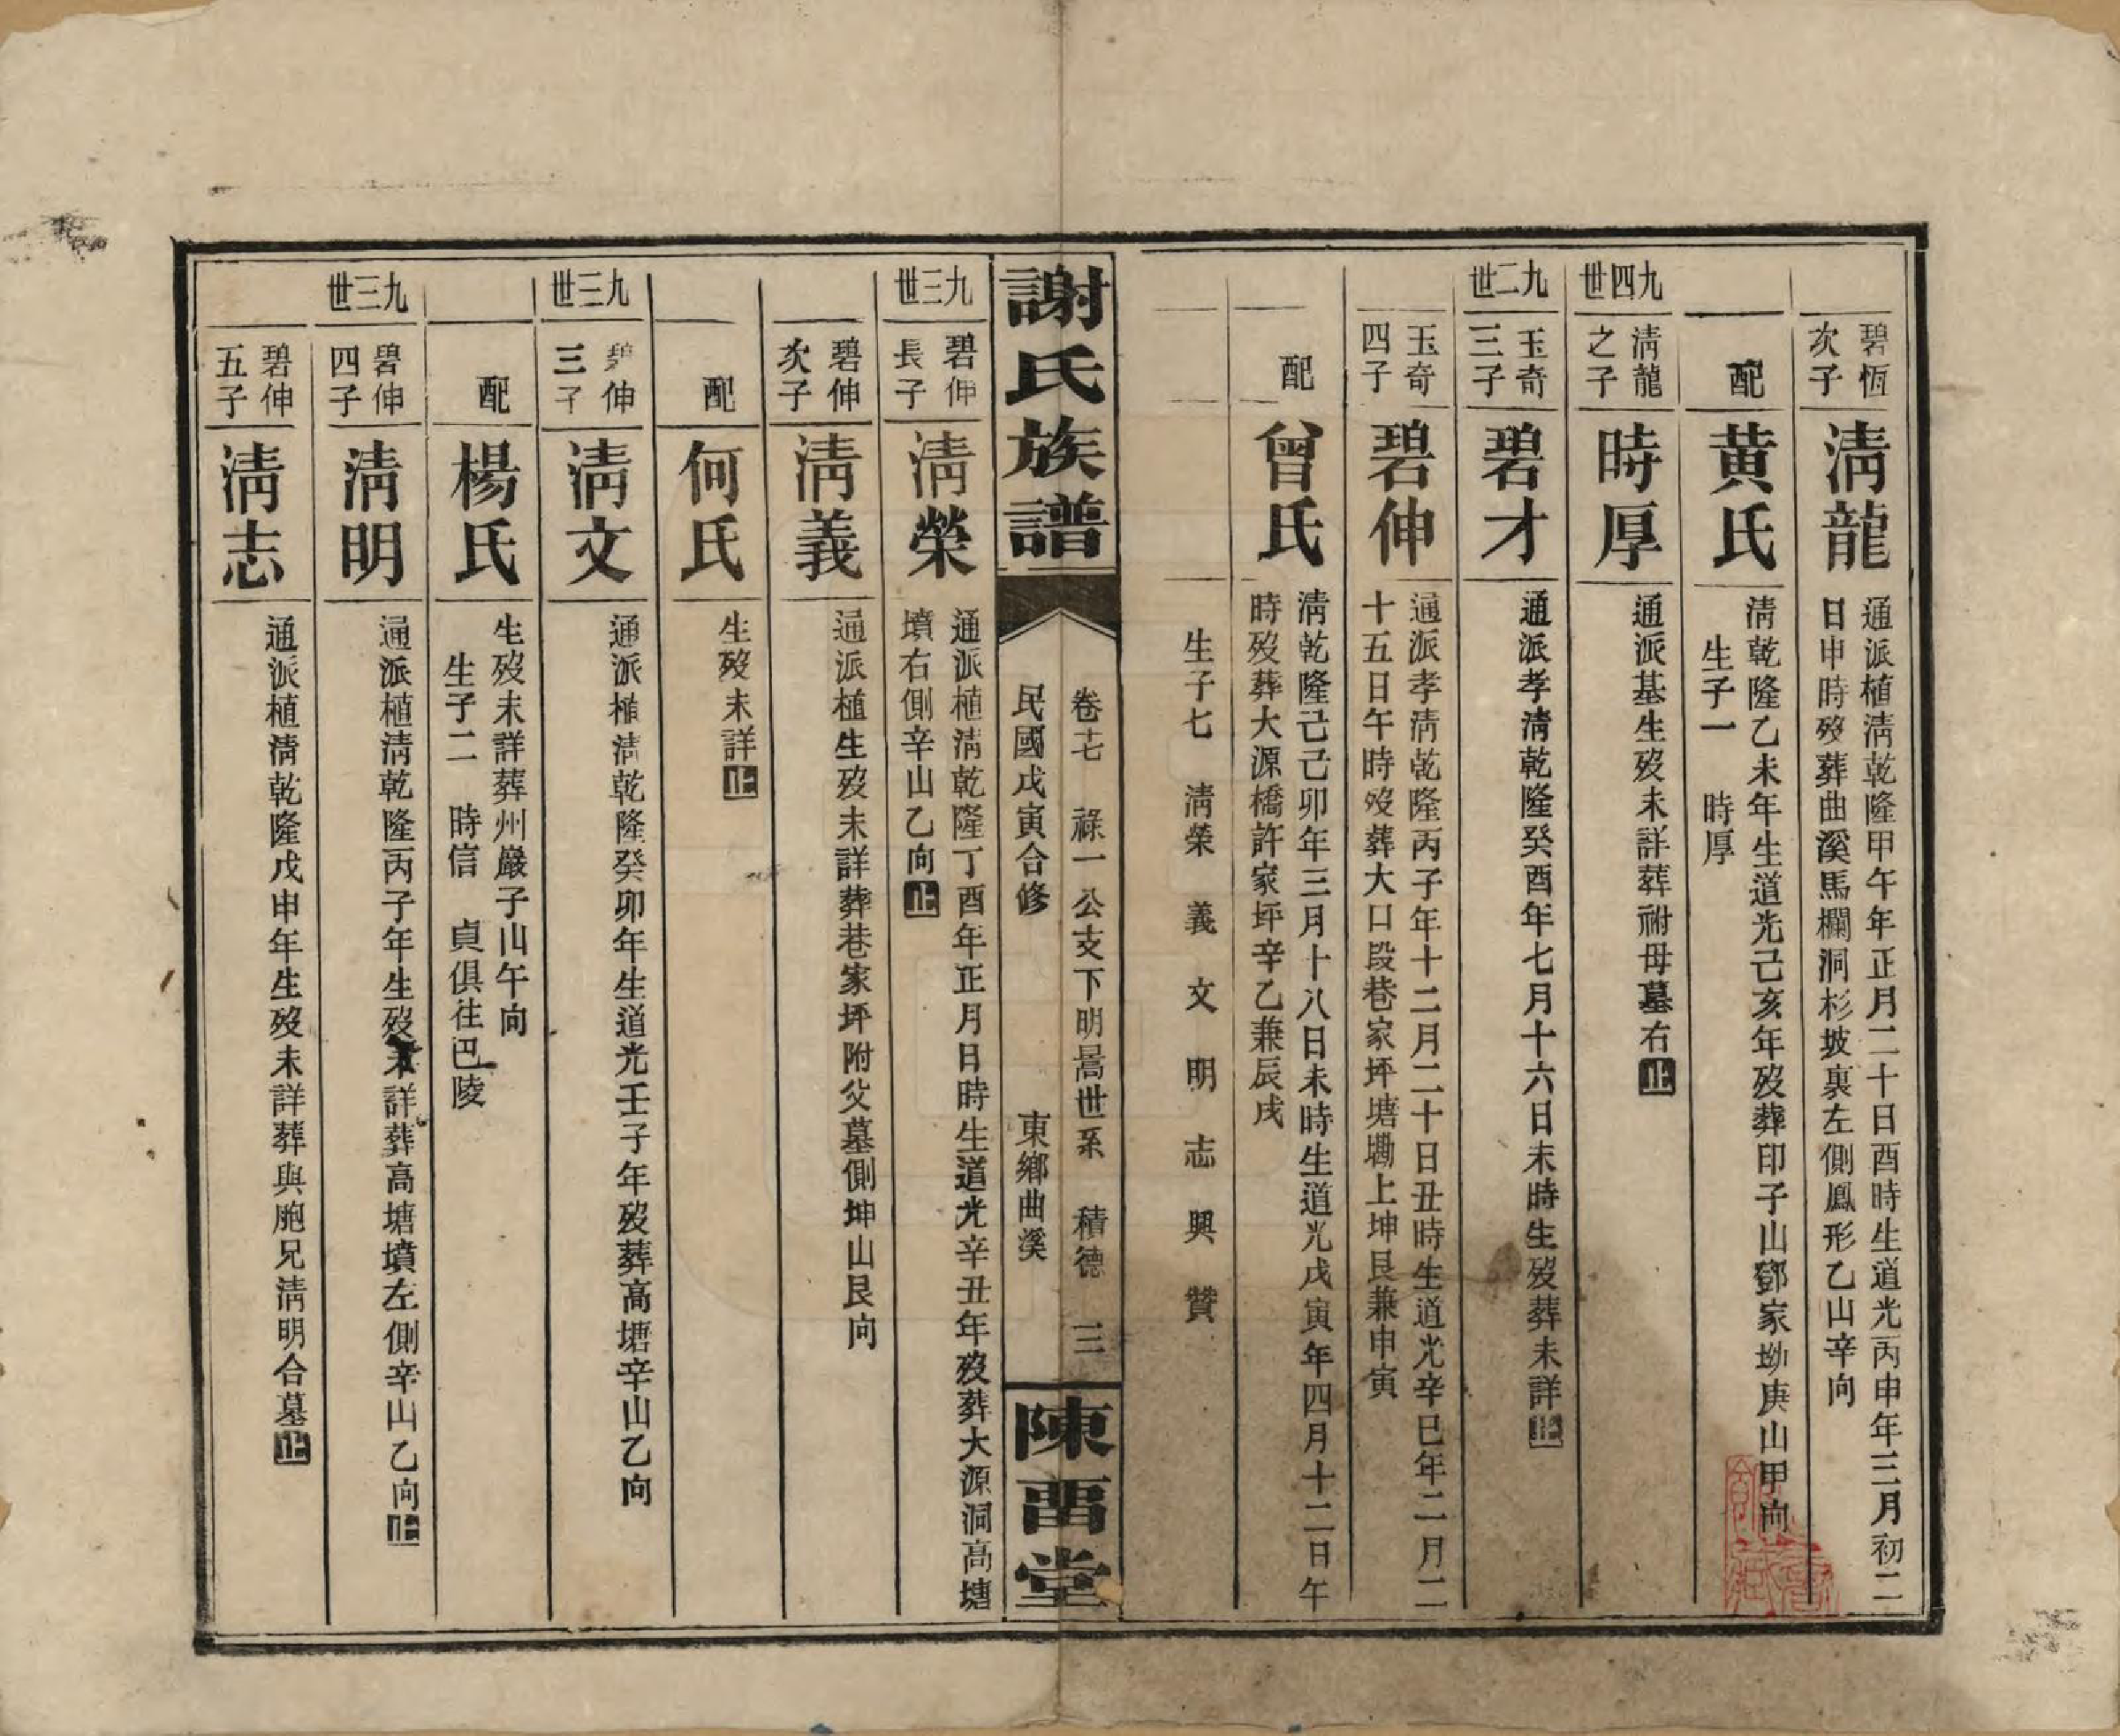 碧恆次子
清龍
通派植清乾隆甲午年正月二十日酉時生道光丙申年三月初二
日申時歿葬曲溪馬欄洞杉坡裏左側鳳形乙山辛向
配
黃氏
清乾隆乙未年生道光己亥年歿葬印子山鄧家坳庚山甲向
生子一 時厚
九四世
清龍之子
時厚
通派基生歿未詳葬祔母墓右止
九二世
玉奇三子
碧才
通派孝清乾隆癸酉年七月十六日未時生歿葬未詳止
玉奇四子
碧伸
通派孝清乾隆丙子年十二月二十日丑時生道光辛巳年二月二
十五日午時歿葬大口段巷家坪塘墈上坤艮兼申寅
配
曾氏
清乾隆己卯年三月十八日未時生道光戊寅年四月十二日午
時歿葬大源橋許家坪辛乙兼辰戌
生子七 清榮 義 文 明 志 興 贊
謝氏族譜
卷十七 祿一公支下明暠世系 積德 三
民國戊寅合修 東鄉曲溪
陳畱堂
九三世
碧伸長子
清榮
通派植清乾隆丁酉年正月日時生道光辛丑年歿葬大源洞高塘
墳右側辛山乙向止
碧伸次子
清義
通派植生歿未詳葬巷家坪附父墓側坤山艮向
配
何氏
生歿未詳止
九三世
碧伸三子
清文
通派植清乾隆癸卯年生道光壬子年歿葬高塘辛山乙向
配
楊氏
生歿未詳葬州嚴子山午向
生子二 時信 貞俱往巴陵
九三世
碧伸四子
清明
通派植清乾隆丙子年生歿未詳葬高塘墳左側辛山乙向止
碧伸五子
清志
通派植清乾隆戊申年生歿未詳葬與胞兄清明合墓止